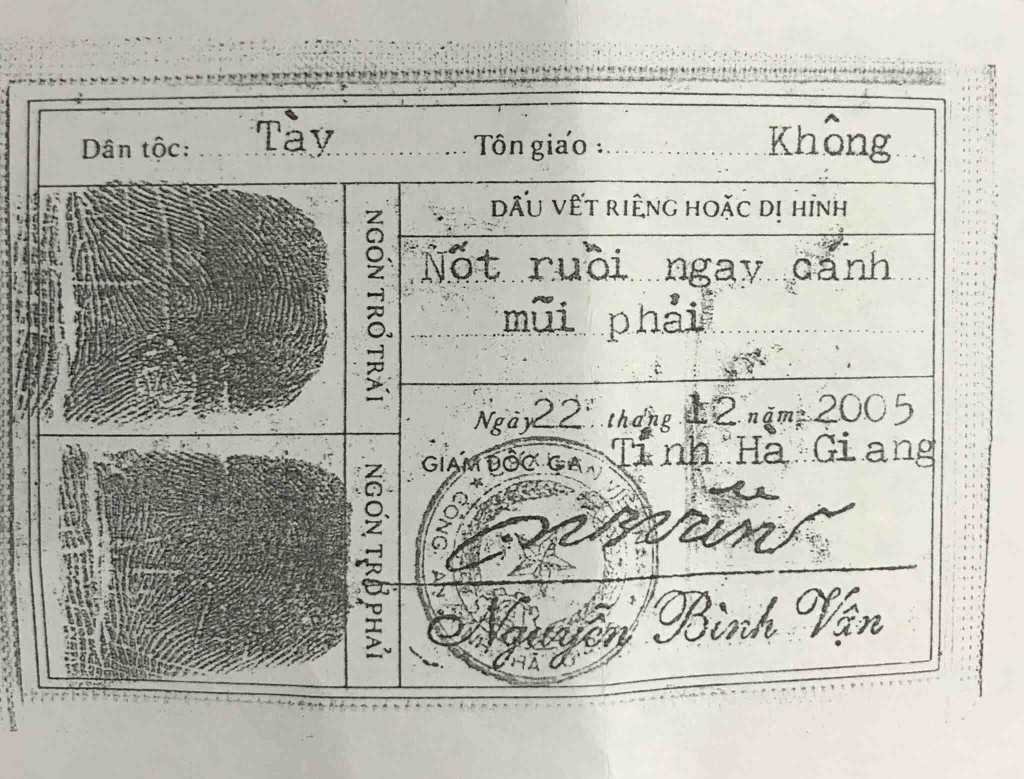 Dân tộc: Tày Tôn giáo : Không
NGÓN TRỎ TRÁI
DẤU VẾT RIÊNG HOẶC DỊ HÌNH
Nốt ruồi ngay cánh
mũi phải
Ngày 22 tháng 12 năm 2005
GIÁM ĐỐC CA Tỉnh Hà Giang
NGÓN TRỎ PHẢI
CÔNG AN
HÀ
Nguyễn Bình Vận